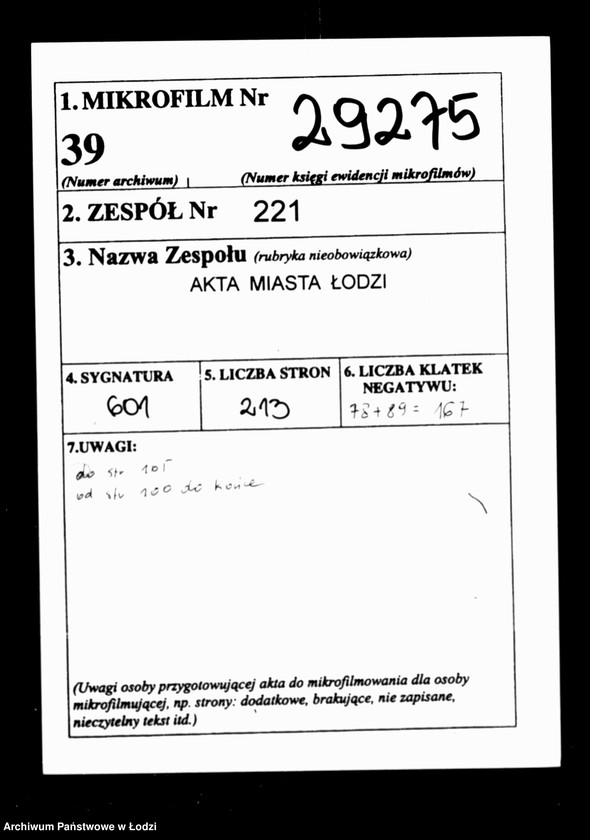 1. MIKROFILM Nr 29275
39
(Numer archiwum) (Numer księgi ewidencji mikrofilmów)
2. ZESPÓŁ Nr 221
3. Nazwa Zespołu (rubryka nieobowiązkowa)
AKTA MIASTA ŁODZI
4. SYGNATURA 5. LICZBA STRON 6. LICZBA KLATEK
NEGATYWU:
601 213 78+89= 167
7.UWAGI:
do str 105
od str 100 do końca
(Uwagi osoby przygotowującej akta do mikrofilmowania dla osoby
mikrofilmującej, np. strony: dodatkowe, brakujące, nie zapisane,
nieczytelny tekst itd.)
Archiwum Państwowe w Łodzi